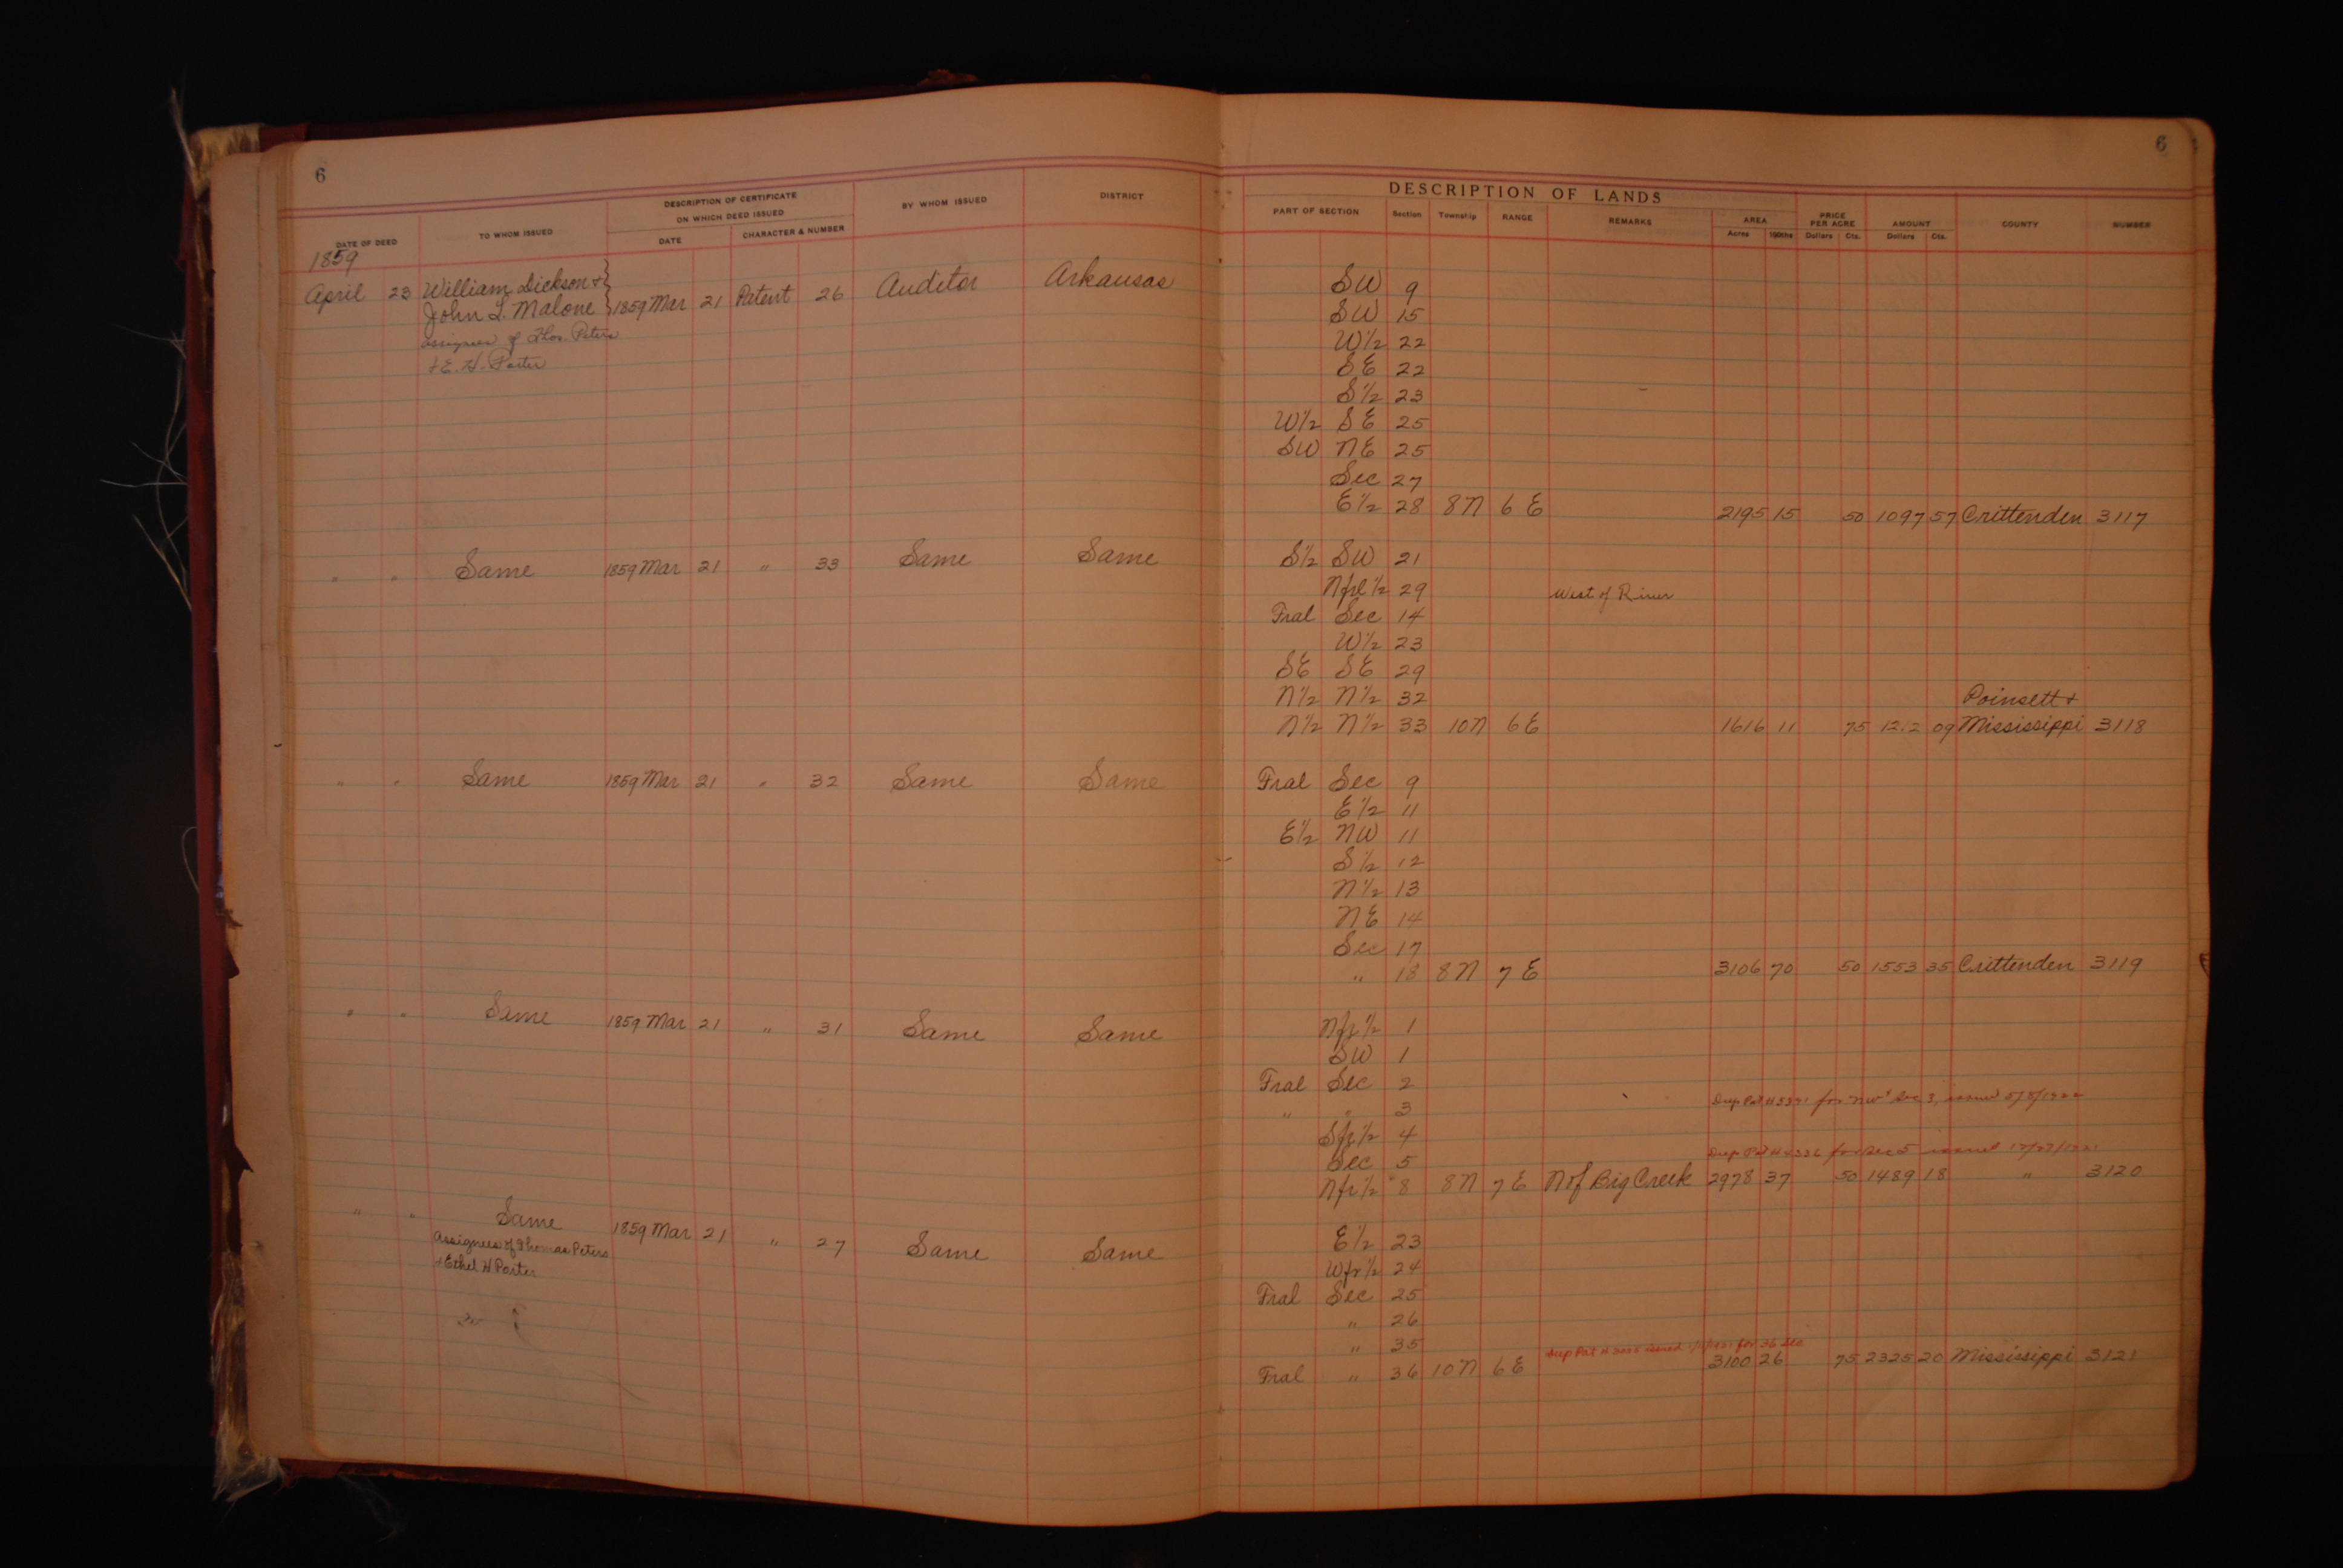 6
6
DESCRIPTION OF LANDS
DATE OF DEED TO WHOM ISSUED DESCRIPTION OF CERTIFICATE ON WHICH DEED ISSUED DATE CHARACTER & NUMBER BY WHOM ISSUED DISTRICT PART OF SECTION Section Township RANGE REMARKS AREA Acres 100ths PRICE PER ACRE Dollars Cts. AMOUNT Dollars Cts. COUNTY NUMBER
1859
April 23 William Dickson + 1859 Mar 21 Patent 26 Auditor Arkansas SW 9
John L. Malone SW 15
assignees of Thos. Peters W½ 22
+ E. H. Porter SE 22
S½ 23
W½ SE 25
SW NE 25
Sec 27
E½ 28 8N 6E 2195 15 50 1097 57 Crittenden 3117
" " Same 1859 Mar 21 " 33 Same Same S½ SW 21
Nfrl½ 29 West of River
Fral Sec 14
W½ 23
SE SE 29
N½ N½ 32 Poinsett +
N½ N½ 33 10N 6E 1616 11 75 1212 09 Mississippi 3118
" " Same 1859 Mar 21 " 32 Same Same Fral Sec 9
E½ 11
E½ NW 11
S½ 12
N½ 13
NE 14
Sec 17
" 18 8N 7E 3106 70 50 1553 35 Crittenden 3119
" " Same 1859 Mar 21 " 31 Same Same Nfr½ 1
SW 1
Fral Sec 2
" " 3 Dup Pat # for NW¼ Sec 3, issued 5/5/1922
Sfr½ 4
Sec 5 Dup Pat # for Sec 5 issued
Nfr½ 8 8N 7E N of Big Creek 2978 37 50 1489 18 " 3120
" " Same 1859 Mar 21 " 27 Same Same E½ 23
Assignees of Thomas Peters Wfr½ 24
+ Ethel H Porter Fral Sec 25
" 26
" 35 Dup Pat # issued for 36 Sec
Fral " 36 10N 6E 3100 26 75 2325 20 Mississippi 3121